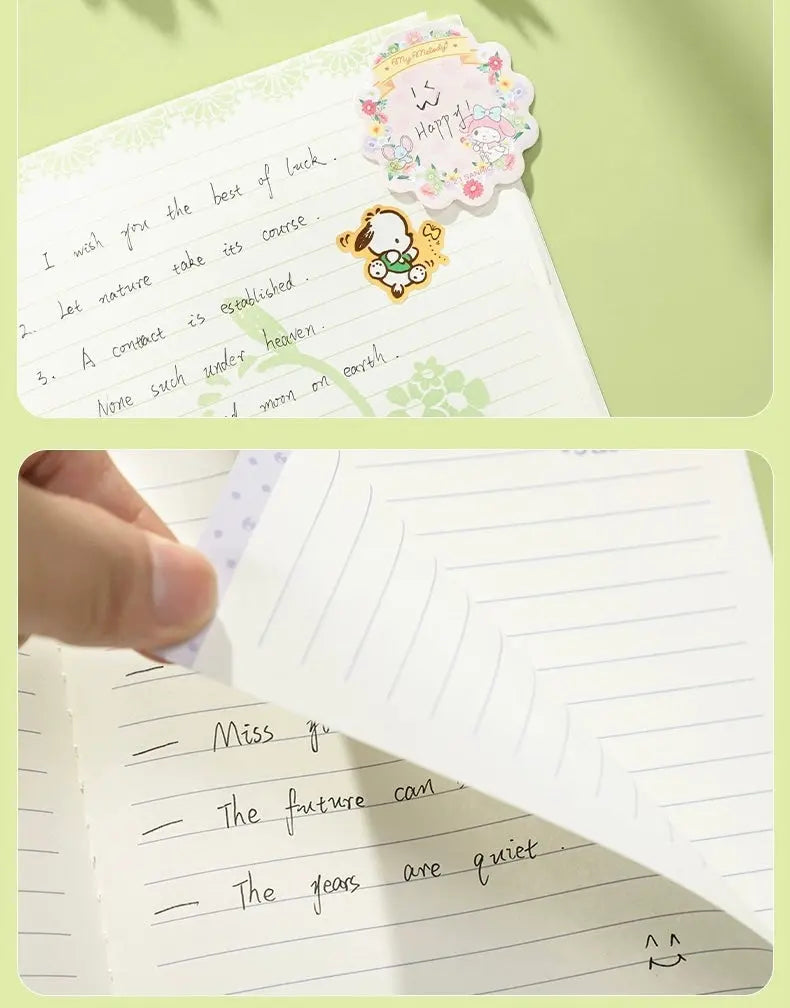 My Melody
Happy!
I wish you the best of luck.
2. Let nature take its course.
3. A contact is established.
None such under heaven.
moon on earth.
— Miss
— The future can
— The years are quiet.